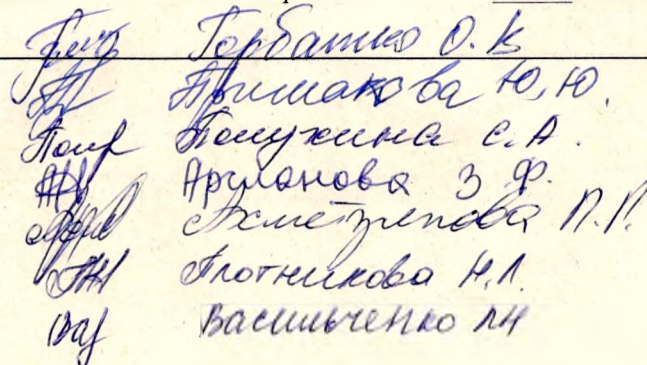 Горбатко О. В
Примакова Ю. Ю.
Полухина С. А.
Арсланова З Ф.
Ахметзянова Л. Г.
Плотникова Н. Л.
Васильченко ЛН